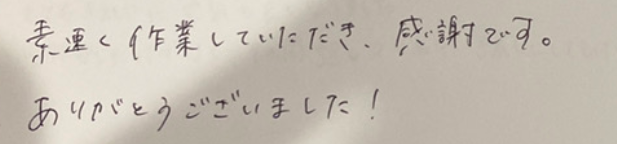 素速く作業していただき、感謝です。
ありがとうございました!